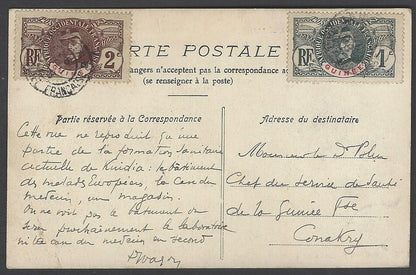 AFRIQUE OCCIDENTALE FRANÇAISE
RF 2
GUINÉE
AFRIQUE OCCIDENTALE FRANÇAISE
RF 1
GUINÉE
FRANÇAISE
RTE POSTALE
angers n'acceptent pas la correspondance au
(se renseigner à la poste)
Partie réservée à la Correspondance
Cette vue ne reproduit qu'une
partie de la formation sanitaire
actuelle de Kindia: le bâtiment
des malades Européens, la case du
médecin, un magasin.
On ne voit pas le bâtiment où
sera prochainement le laboratoire
ni la case du médecin en second
Adresse du destinataire
Monsieur le Dr
Chef du Service de Santé
de la Guinée Fse
Conakry